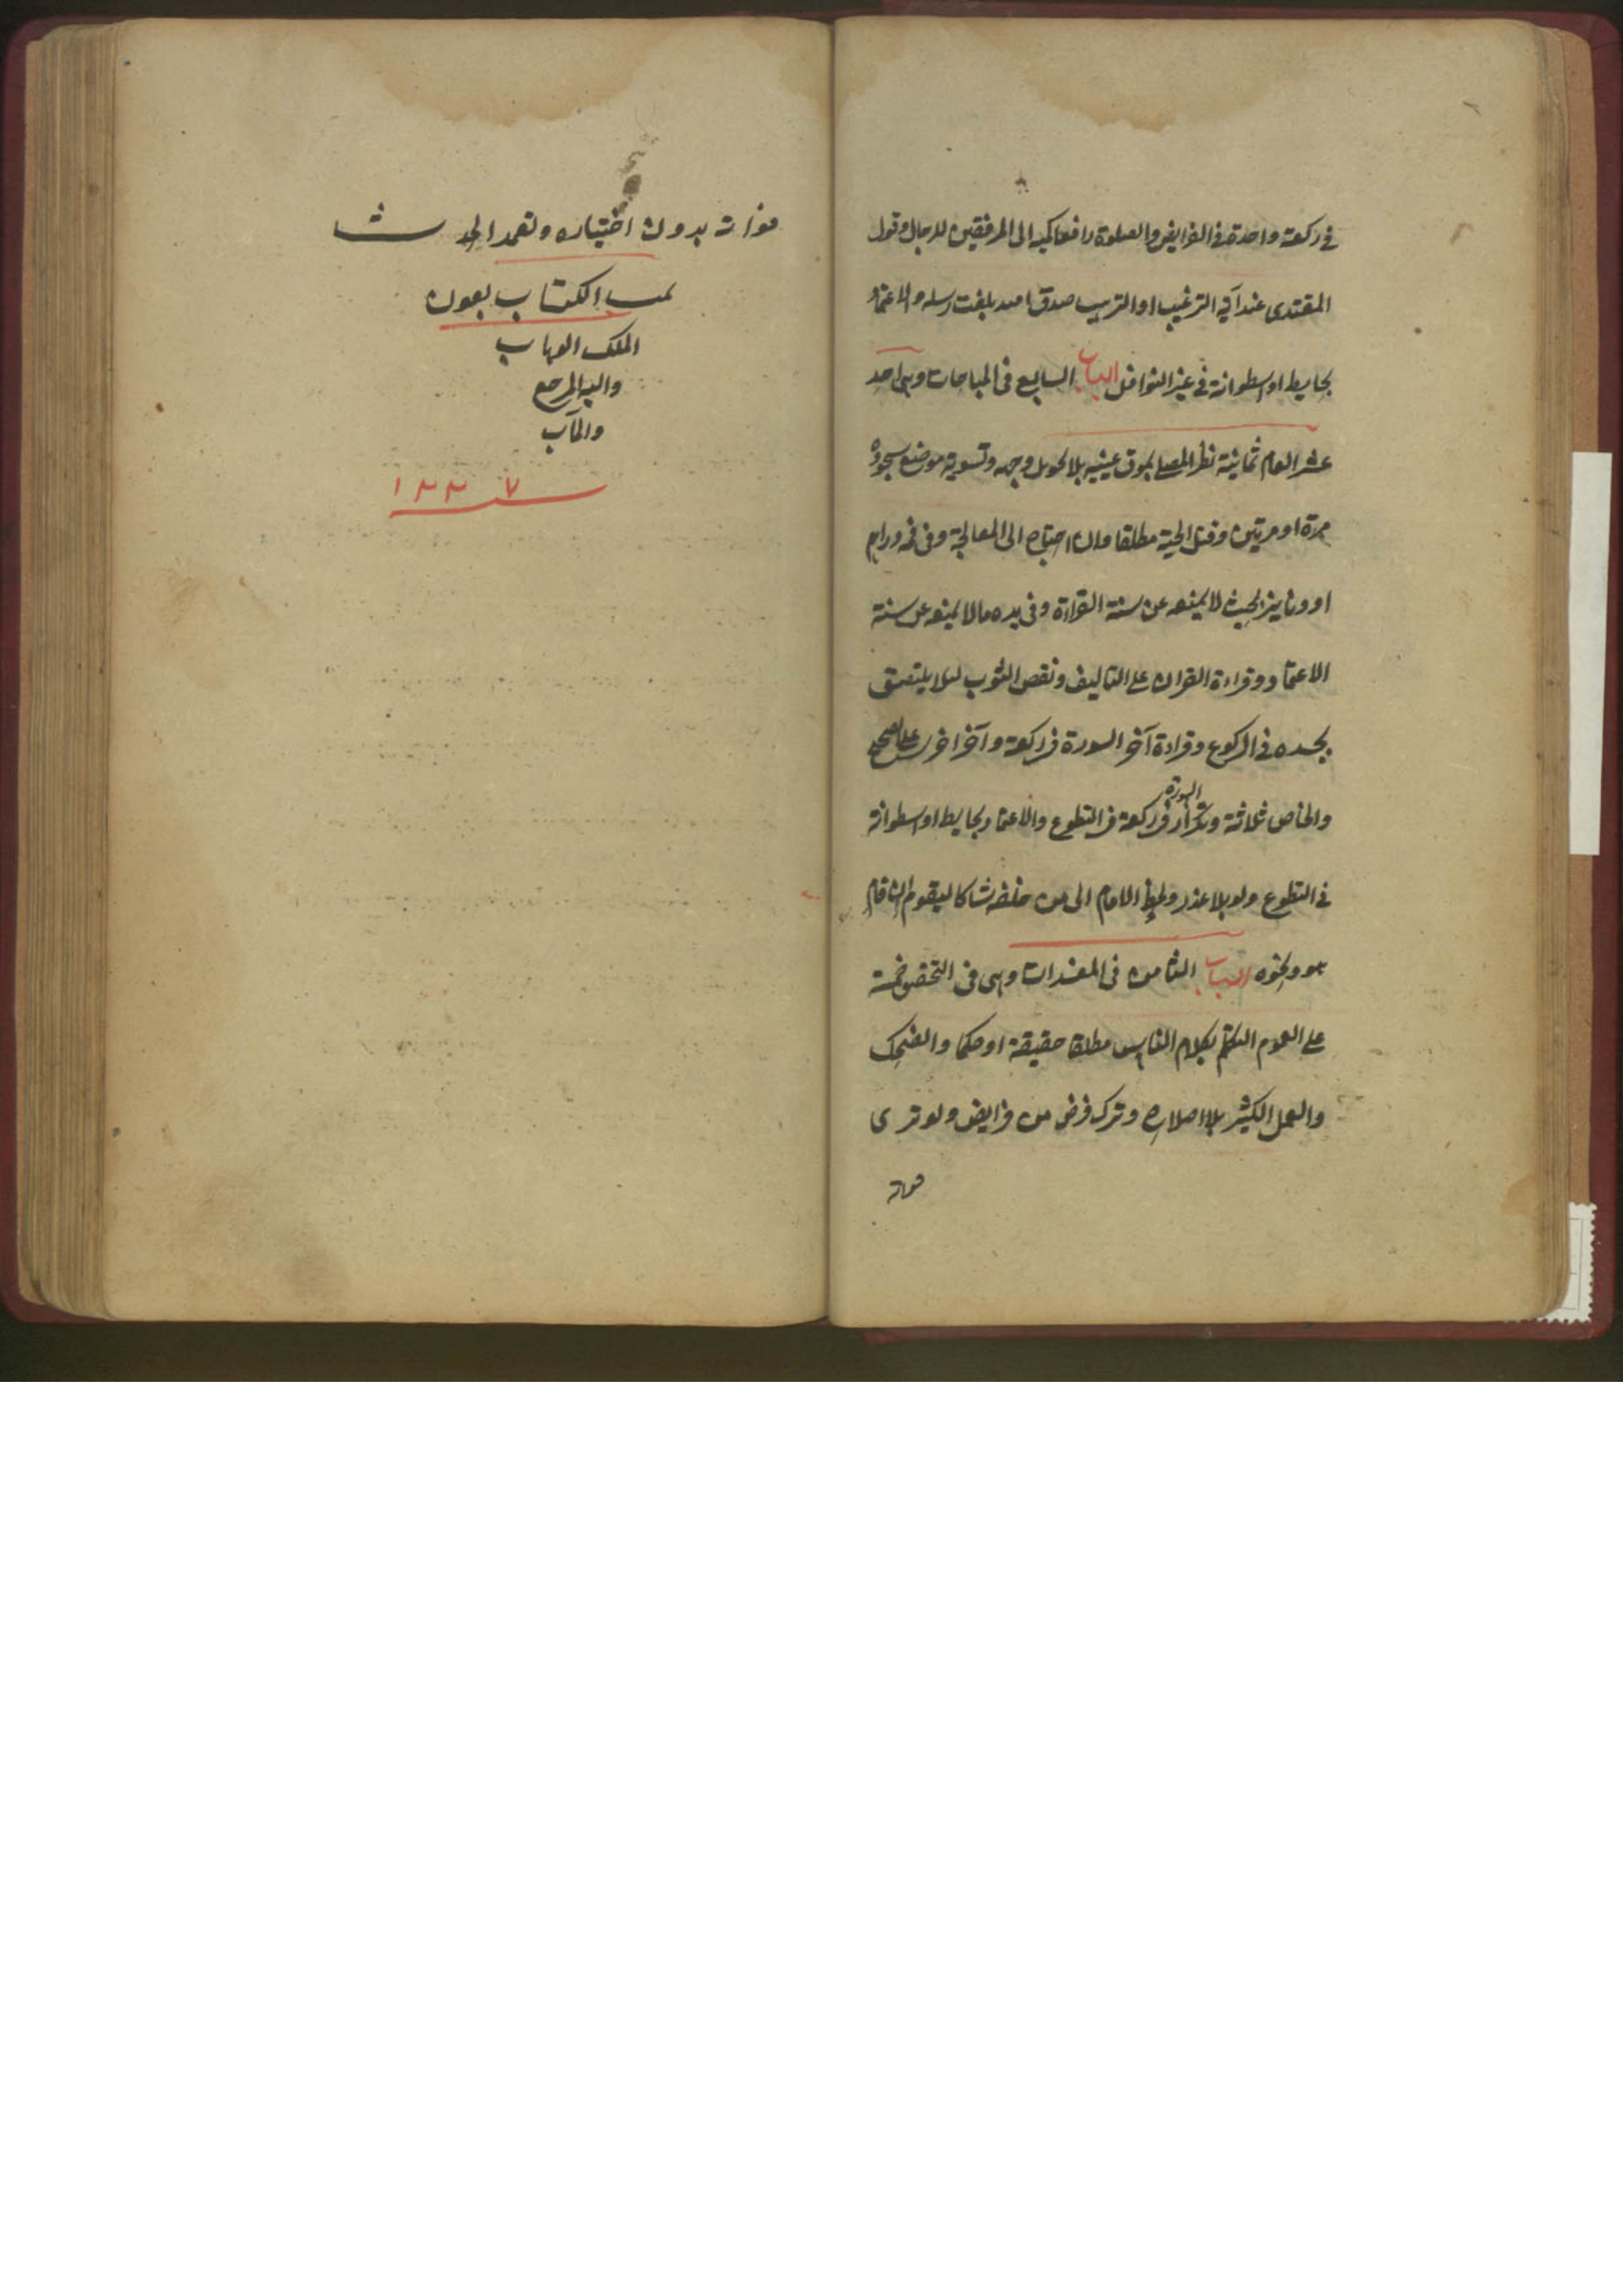 في ركعة واحدة في الفرايض والصلوة رافعا كميه الى المرفقين للرجال وقول
المقتدى عند آية الترغيب او الترهيب صدق الله وبلغت رسله والاعتماد
بحايط او اسطوانة في غير النوافل الباب السابع فى المباحات وهى احد
عشر العام ثمانية نظر المصلى بموق عينيه بلا تحويل وجهه وتسوية موضع سجوده
مرة او مرتين وقتل الحية مطلقا وان احتاج الى المعالجة وفى فمه دراهم
او دنانير بحيث لا يمنعه عن سنة القراءة وفى يده مالا يمنعه عن سنة
الاعتماد وقراءة القران على التاليف ونفض الثوب لئلا يلتصق
بجسده في الركوع وقراءة آخر السورة في ركعة وآخر اخرى على الصحيح
والخاص ثلاثة وتكرار السورة في ركعة في التطوع والاعتماد بحايط او اسطوانة
في التطوع ولو بلا عذر ولحظ الامام الى من خلفه شاكا ليقوم ان قام
هو ونحوه الباب الثامن فى المفسدات وهى فى التحقيق خمسة
على العموم التكلم بكلام الناس مطلقا حقيقة او حكما والضحك
والعمل الكثير بلا اصلاح وترك فرض من فرايض ولو ترى
فوات
فوات بدون اختياره وتعمد الحدث
تمت الكتاب بعون
الملك الوهاب
واليه المرجع
والمآب